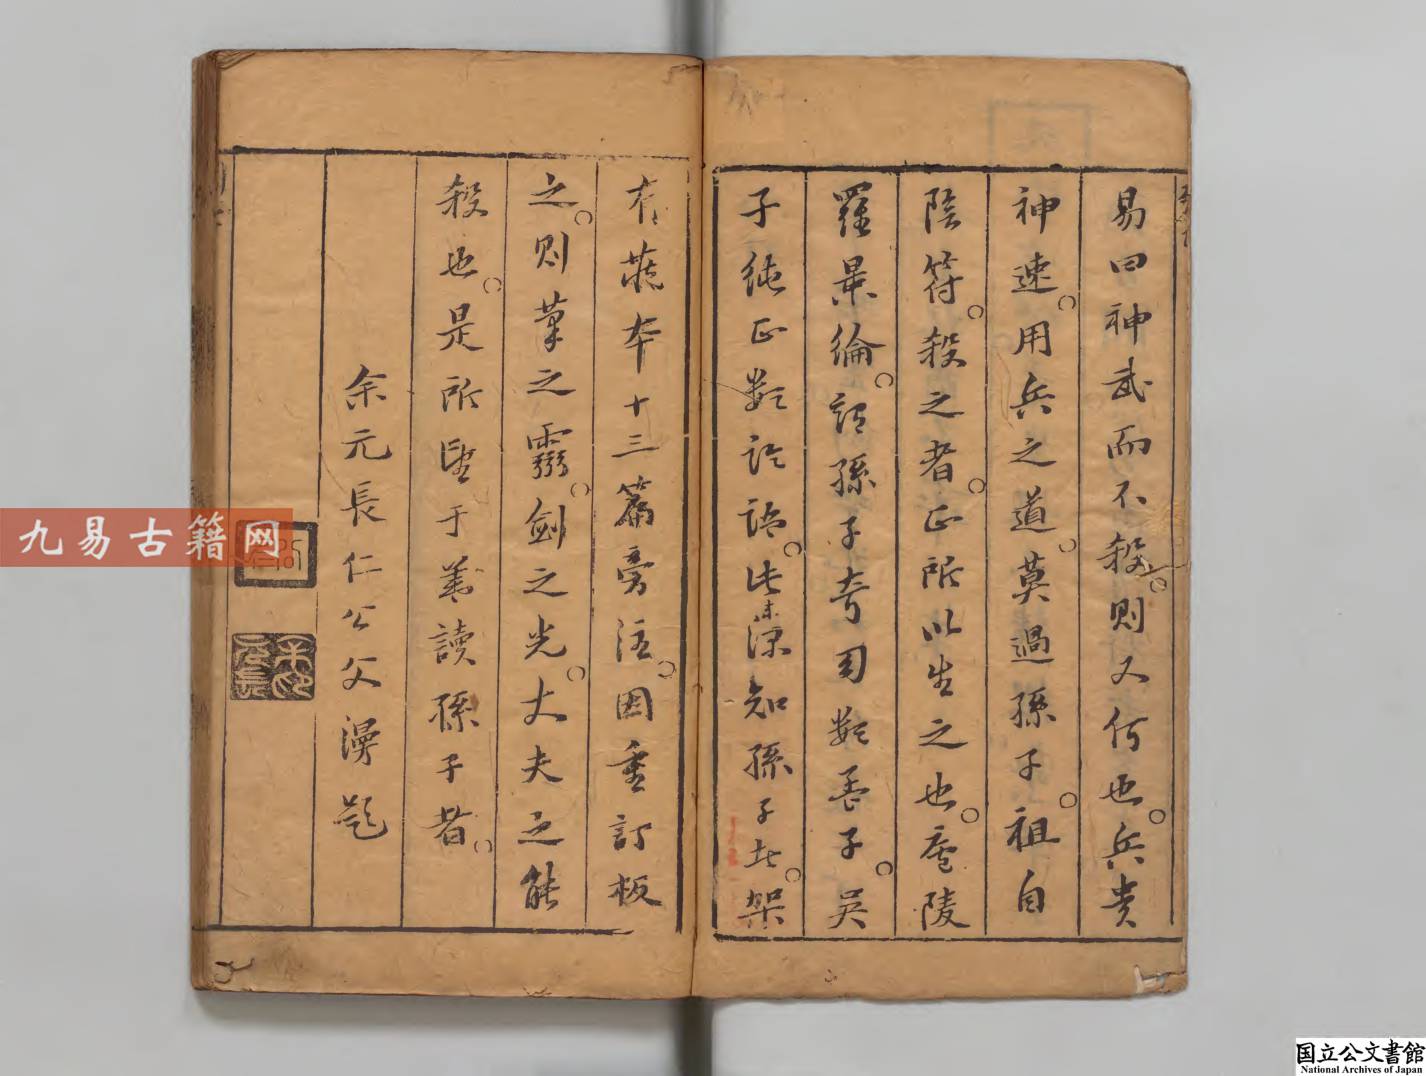 易曰神武而不殺則又何也兵貴
神速用兵之道莫過孫子祖自
陰符殺之者正所以生之也廬陵
羅景綸謂孫子奇司類孟子吳
子純正類論語此未深知孫子者架
有蔬本十三篇旁注因重訂板
之則筆之靈劍之光丈夫之能
殺也是所望于善讀孫子者
余元長仁公父漫題
九易古籍网
国立公文書館
National Archives of Japan